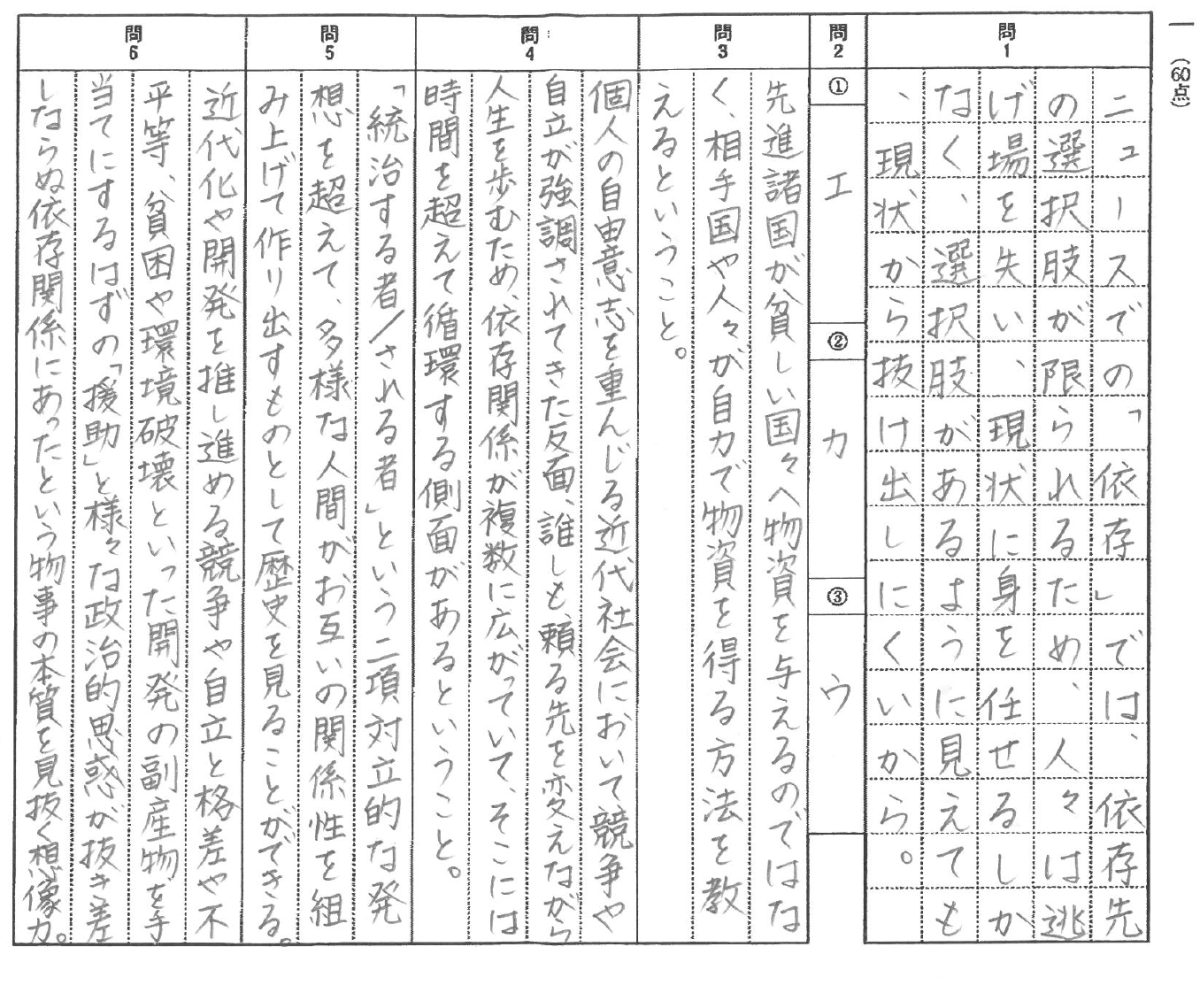 一
（60点）
問1
ニュースでの「依存」では、依存先
の選択肢が限られるため、人々は逃
げ場を失い、現状に身を任せるしか
なく、選択肢があるように見えても
、現状から抜け出しにくいから。
問2
①
エ
②
カ
③
ウ
問3
先進諸国が貧しい国々へ物資を与えるのではな
く、相手国や人々が自力で物資を得る方法を教
えるということ。
問4
個人の自由意志を重んじる近代社会において競争や
自立が強調されてきた反面、誰しも頼る先を変えながら
人生を歩むため、依存関係が複数に広がっていて、そこには
時間を超えて循環する側面があるということ。
問5
「統治する者/される者」という二項対立的な発
想を超えて、多様な人間がお互いの関係性を組
み上げて作り出すものとして歴史を見ることができる。
問6
近代化や開発を推し進める競争や自立と格差や不
平等、貧困や環境破壊といった開発の副産物を手
当てにするはずの「援助」と様々な政治的思惑が抜き差
しならぬ依存関係にあったという物事の本質を見抜く想像力。